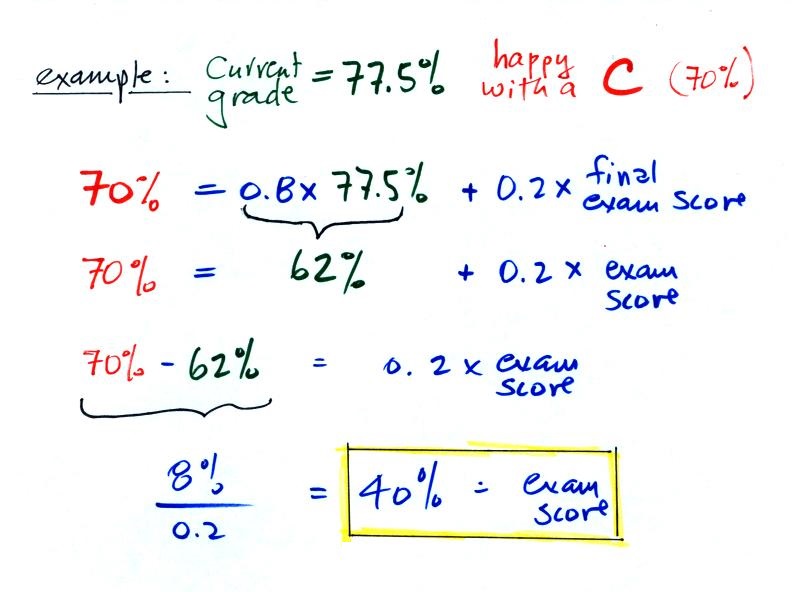 example: Current grade = 77.5% happy with a C (70%)
70% = 0.8 x 77.5% + 0.2 x final exam score
70% = 62% + 0.2 x exam score
70% - 62% = 0.2 x exam score
8% / 0.2 = 40% = exam score